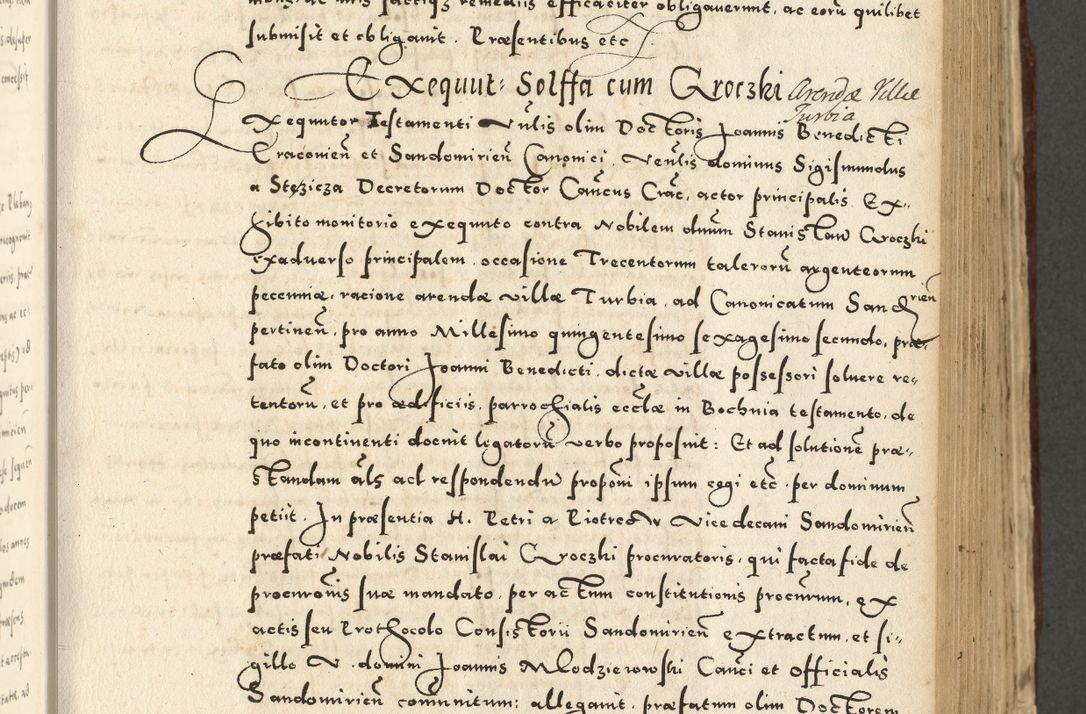 submisit et obligavit. Præsentibus etc
Exequut: Solffa cum Groczki Arendæ Villæ
Turbia
Exequutor Testamenti Vnlis olim Doctoris Joannis Benedicti
Cracovien̄ et Sandomirien̄ Canonici. Venlis dominus Sigismundus
a Stęzicza Decretorum Doctor Cancus Crac̄, actor principalis Ex-
hibito monitorio exequuto contra Nobilem dnum Stanislaw Groczki
exadverso principalem. occasione Trecentorum talerorū argenteorum
pecuniæ, racione arendæ villæ Turbia. ad Canonicatum Sandrien̄
pertinen̄, pro anno Millesimo quingentesimo sexagesimo secundo, præ-
fato olim Doctori Joanni Benedicti, dictæ villæ possessori solvere re-
tentorū, et pro ædificiis, parrochialis eccłæ in Bochnia testamento, de
quo incontinenti docuit legatorū verbo proposuit: Et ad solutionē præ-
standam als ad respondendū proponi ipsum cogi etc̄ per dominum
petiit. In præsentia H. Petri a Piotrcow Vicedecani Sandomirien̄
præfati Nobilis Stanislai Groczki procuratoris, qui facta fide de
procuronis suæ mandato, per actum constitutionis procurum, ex
actis seu Prothocolo Consistorii Sandomirien̄ extractum, et si-
gillo V. domini Joannis Mlodzieiowski Canci et officialis
Sandomirien̄ communitum: allegavit, præfatum olim Doctorem